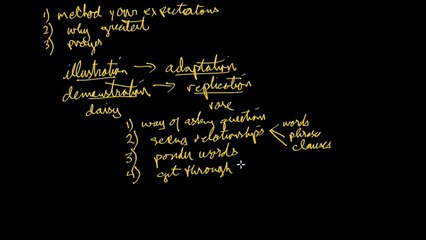 1) method your expectations
2) why greatest
3) prayer
illustration → adaptation
demonstration → replication
daisy rose
1) way of asking questions
2) seeing relationships words
phrases
clauses
3) ponder words
4) cut through